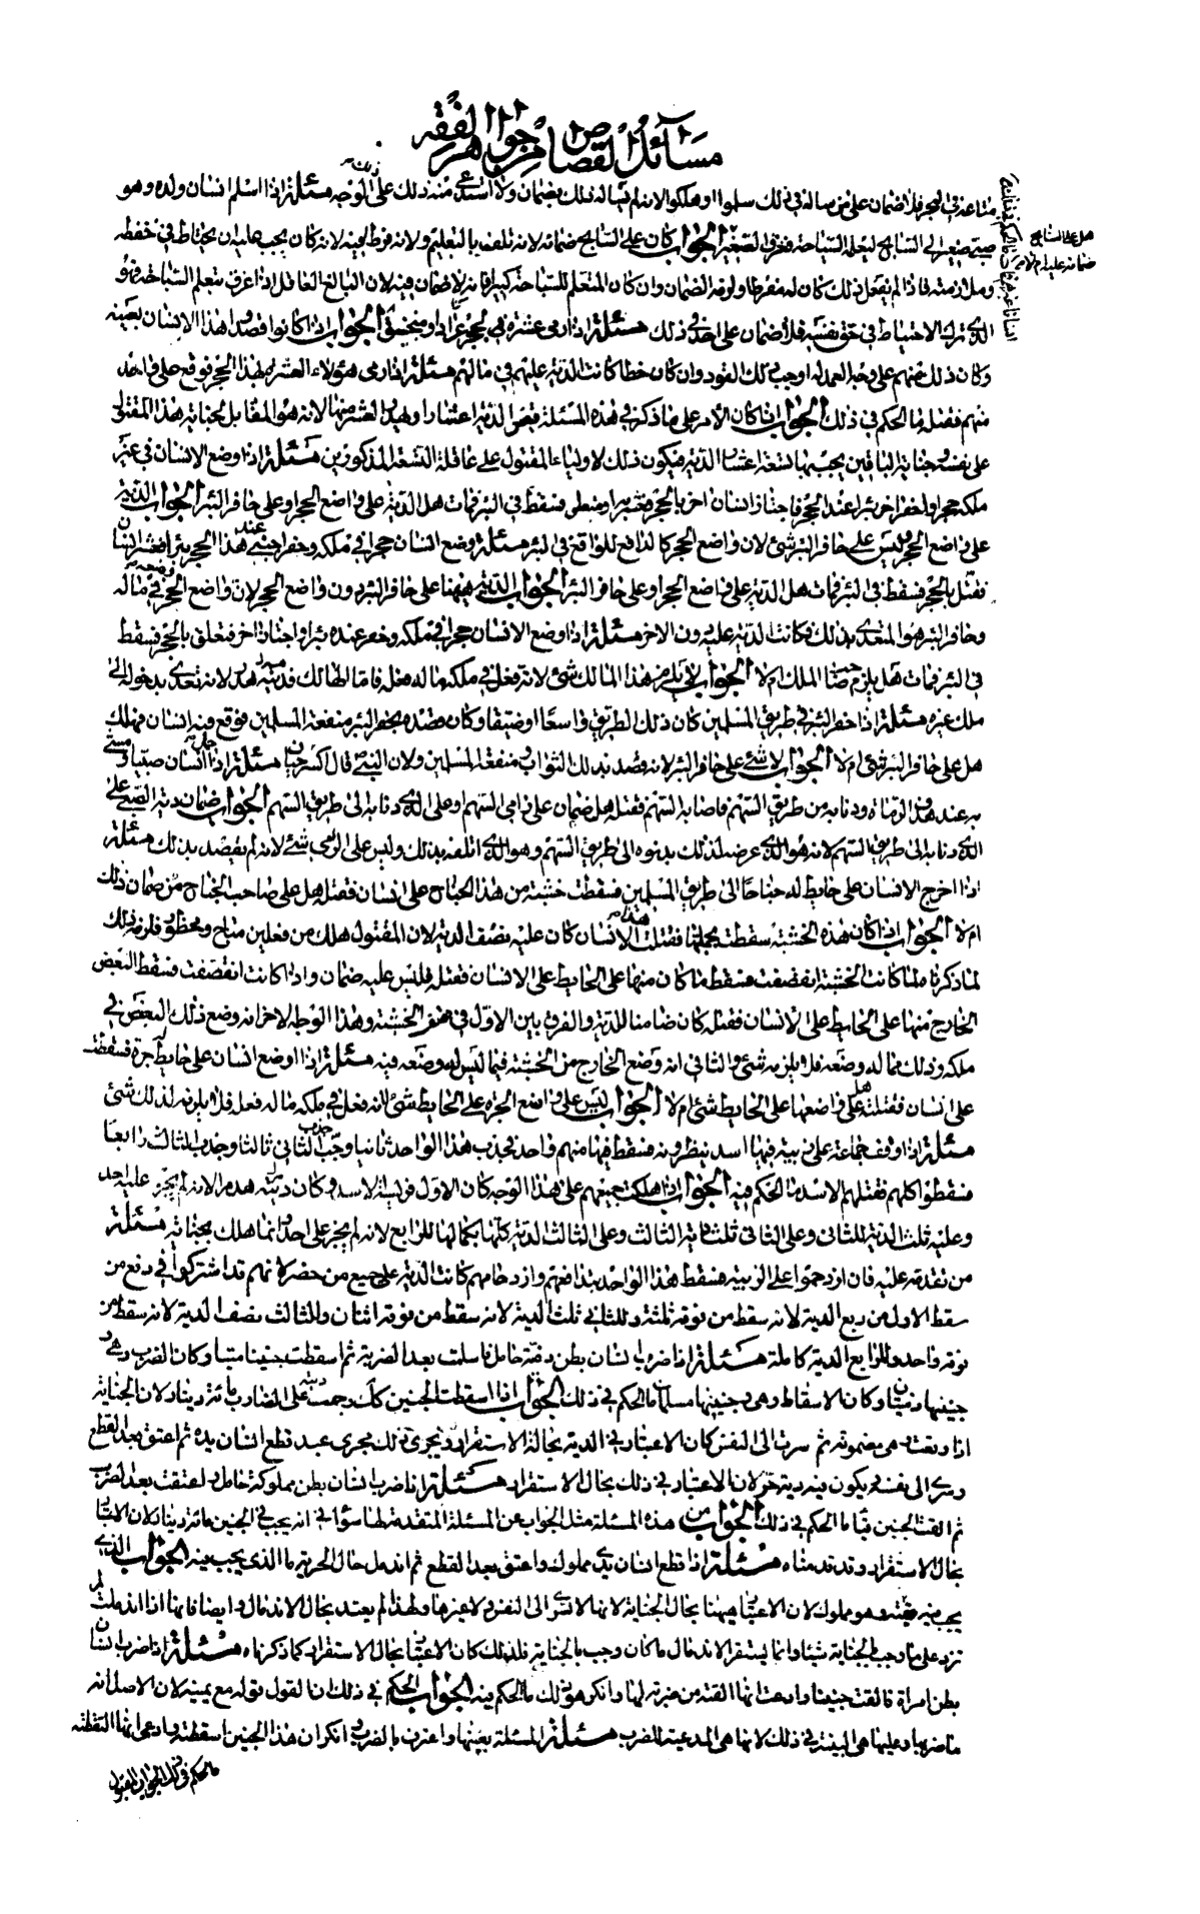 مسائل القصاص من جواهر الفقه
متاعه في البحر فلا ضمان على من ساله في ذلك سلموا او هلكوا لانه لم قباله ذلك بضمان ولا استدعى منه ذلك على الوجه مسئلة اذا اسلم انسان ولده وهو
صبي صغير الى السابح ليعلمه السباحة فغرق الصغير الجواب كان على السابح ضمانه لانه تلف بالتعليم ولانه فرط فيه لانه كان يجب عليه ان يحتاط في حفظه
وملازمته فاذا لم يفعل ذلك كان له مفرطا ولزمه الضمان وان كان المتعلم للسباحة كبيرا فانه لا ضمان فيه لان البالغ العاقل اذا غرق بتعلم السباحة فهو
الذي ترك الاحتياط في حق نفسه فلا ضمان على احد في ذلك مسئلة اذا رمى عشرة بحجر عرادة او منجنيق الجواب اذا كانوا قصدوا هذا الانسان بعينه
وكان ذلك منهم على وجه العمد له اوجب ذلك القود وان كان خطا كانت الدية عليهم في مالهم مسئلة اذا رمى هؤلاء العشرة بهذا الحجر فوقع على واحد
منهم فقتله ما الحكم في ذلك الجواب اذا كان الأمر على ما ذكر في هذه المسئلة بعض الدية اعشارا وهدر العشر منها لانه هو المقابل لجنايه هذا المقتول
على نفسه وجناية الباقين يجب بها تسعة اعشار الدية فيكون ذلك لاولياء المقتول على عاقلة التسعة المذكورين مسئلة اذا وضع الانسان في غير
ملكه حجرا وحفر اخر بئرا عند الحجر فاجتاز انسان اخر بالحجر فتعثر به وسقط في البئر فمات هل الدية على واضع الحجر او على حافر البئر الجواب الدية
على واضع الحجر وليس على حافر البئر شئ لان واضع الحجر كالدافع للواقع في البئر مسئلة وضع انسان حجرا في ملكه وحفر اجنبي عند هذا الحجر بئرا فعثر انسان
فقتل بالحجر فسقط في البئر فمات هل الدية على واضع الحجر او على حافر البئر الجواب الدية ههنا على حافر البئر دون واضع الحجر لان واضع الحجر وضعه في ماله
وحافر البئر هو المتعدي بذلك فكانت الدية عليه دون الاخر مسئلة اذا وضع الانسان حجرا في ملكه وحفر عنده بئرا واجتاز اخر فتعلق بالحجر فسقط
في البئر فمات هل يلزم صاحب الملك ام لا الجواب لا يلزم هذا المالك شئ لانه فعل في ملكه ما له فعله فاما الهالك فديته هدر لانه تعدى بدخوله الى
ملك غيره مسئلة اذا حفر البئر في طريق المسلمين كان ذلك الطريق واسعا او ضيقا وكان قصده بحفر البئر منفعة المسلمين فوقع فيه انسان فهلك
هل على حافر البئر شئ ام لا الجواب لا شئ على حافر البئر لانه قصد بذلك الثواب منفعة المسلمين ولان النبي قال البئر جبار مسئلة اذا اخذ انسان صبيا ومشى
به عند هدف الرماة ودنا به من طريق السهم فاصابه السهم فقتله هل ضمان على رامى السهم او على الذي دنا به الى طريق السهم الجواب ضمان دية الصبي على
الذي دنا به الى طريق السهم لانه هو الذي عرضه لذلك بدنوه الى طريق السهم وهو الذي اتلفه بذلك وليس على الرامي شئ لانه لم يقصد بذلك مسئلة
اذا اخرج الانسان على حايط له جناحا الى طريق المسلمين فسقطت خشبة من هذا الجناح على انسان فقتله هل على صاحب الجناح من ضمان ذلك
ام لا الجواب اذا كان هذه الخشبة سقطت بجملتها فقتلت هذا الانسان كان عليه نصف الدية لان المقتول هلك من فعلين مباح ومحظور فلزمه ذلك
لما ذكرناه فلما كانت الخشبة انقصفت فسقط ما كان منها على الحايط على الانسان فقتله فليس عليه ضمان واذا كانت انقصفت فسقط البعض
الخارج منها على الحايط على الانسان فقتله كان ضامنا للدية والفرق بين الاول في الخشبة وهذا الوجه الاخر انه وضع ذلك البعض في
ملكه وذلك مما له وضعه فلا يلزمه شئ والثاني انه وضع الخارج من الخشبة فيما ليس له وضعه فيه مسئلة اذا وضع انسان على حايط جرة فسقطت
على انسان فقتلته هل على واضعها على الحايط شئ ام لا الجواب ليس على واضع الجرة على الحايط شئ لانه فعل في ملكه ما له فعله فلا يلزمه لذلك شئ
مسئلة اذا وقف جماعة على زبية فيها اسد ينظرونه فسقط فيها منهم واحد فجذب هذا الواحد ثانيا وجذب الثاني ثالثا وجذب الثالث رابعا
فسقطوا كلهم فقتلهم الاسد ما الحكم فيه الجواب اذا هلك جميعهم على هذا الوجه كان الاول فريسة الاسد وكان ديته هدرا لانه لم يجن عليه احد
وعليه ثلث الدية للثانى وعلى الثانى ثلثا دية الثالث وعلى الثالث الدية كلها بكمالها للرابع لانه لم يجن على احد وانما هلك بجناية مسئلة
من تقدمه عليه فان ازدحموا على الزبية فسقط هذا الواحد بتدافعهم وازدحامهم كانت الدية على جميع من حضر لانهم قد اشتركوا في دفع من
سقط الاول من ربع الدية لانه سقط من فوقه ثلثة وللثاني ثلث الدية لانه سقط من فوقه اثنان وللثالث نصف الدية لانه سقط من
فوقه واحد وللرابع الدية كاملة مسئلة اذا ضرب انسان بطن ذمية حامل فاسلمت بعد الضربة ثم اسقطت جنينا ميتا وكان الضرب وهي
جنينها ذميان وكان الاسقاط وهي وجنينها مسلمان ما الحكم في ذلك الجواب اذا اسقطت الجنين كذلك وجبت ديته على الضارب مائة دينار لان الجناية
اذا وقعت مضمونة ثم سرت الى النفس كان الاعتبار في الدية بحالة الاستقرار ويجرى ذلك مجرى عبد قطع انسان يده ثم اعتق بعد القطع
وسرى الى نفسه يكون فيه دية حر لان الاعتبار في ذلك بحال الاستقرار مسئلة اذا ضرب انسان بطن مملوكة حامل واعتقت بعد الضرب
ثم القت الجنين ميتا ما الحكم في ذلك الجواب عن هذه المسئلة مثل الجواب عن المسئلة المتقدمة لها سواء في انه يجب في الجنين مائة دينار لان الاعتبار
بحال الاستقرار وقد قدمناه مسئلة اذا قطع انسان يدي مملوك واعتق بعد القطع ثم اندمل حال الحرية ما الذي يجب فيه الجواب الذي
يجب فيه قيمته وهو مملوك لان الاعتبار ههنا بحال الجناية لانها لا تسرى الى النفس ولا غيرها ولهذا لم يعتد بحال الاندمال وايضا فانها اذا اندملت لم
تزد على ما وجب بالجناية شيئا وانما يستقر بالاندمال ما كان وجب بالجناية فلذلك كان الاعتبار بحال الاستقرار كما ذكرناه مسئلة اذا ضرب انسان
بطن امراة فالقت جنينا وادعت انها القته من ضربه لها وانكر هو ذلك ما الحكم فيه الجواب الحكم في ذلك ان القول قوله مع يمينه لان الاصل انه
ما ضربها وعليها هي البينة في ذلك لانها هي المدعية للضرب مسئلة المسئلة بعينها واعترف بالضرب وانكر ان هذا الجنين اسقطته وادعى انها التقطته
ما الحكم في ذلك الجواب القول
هل على السابح
ضمانه عليه ام لا